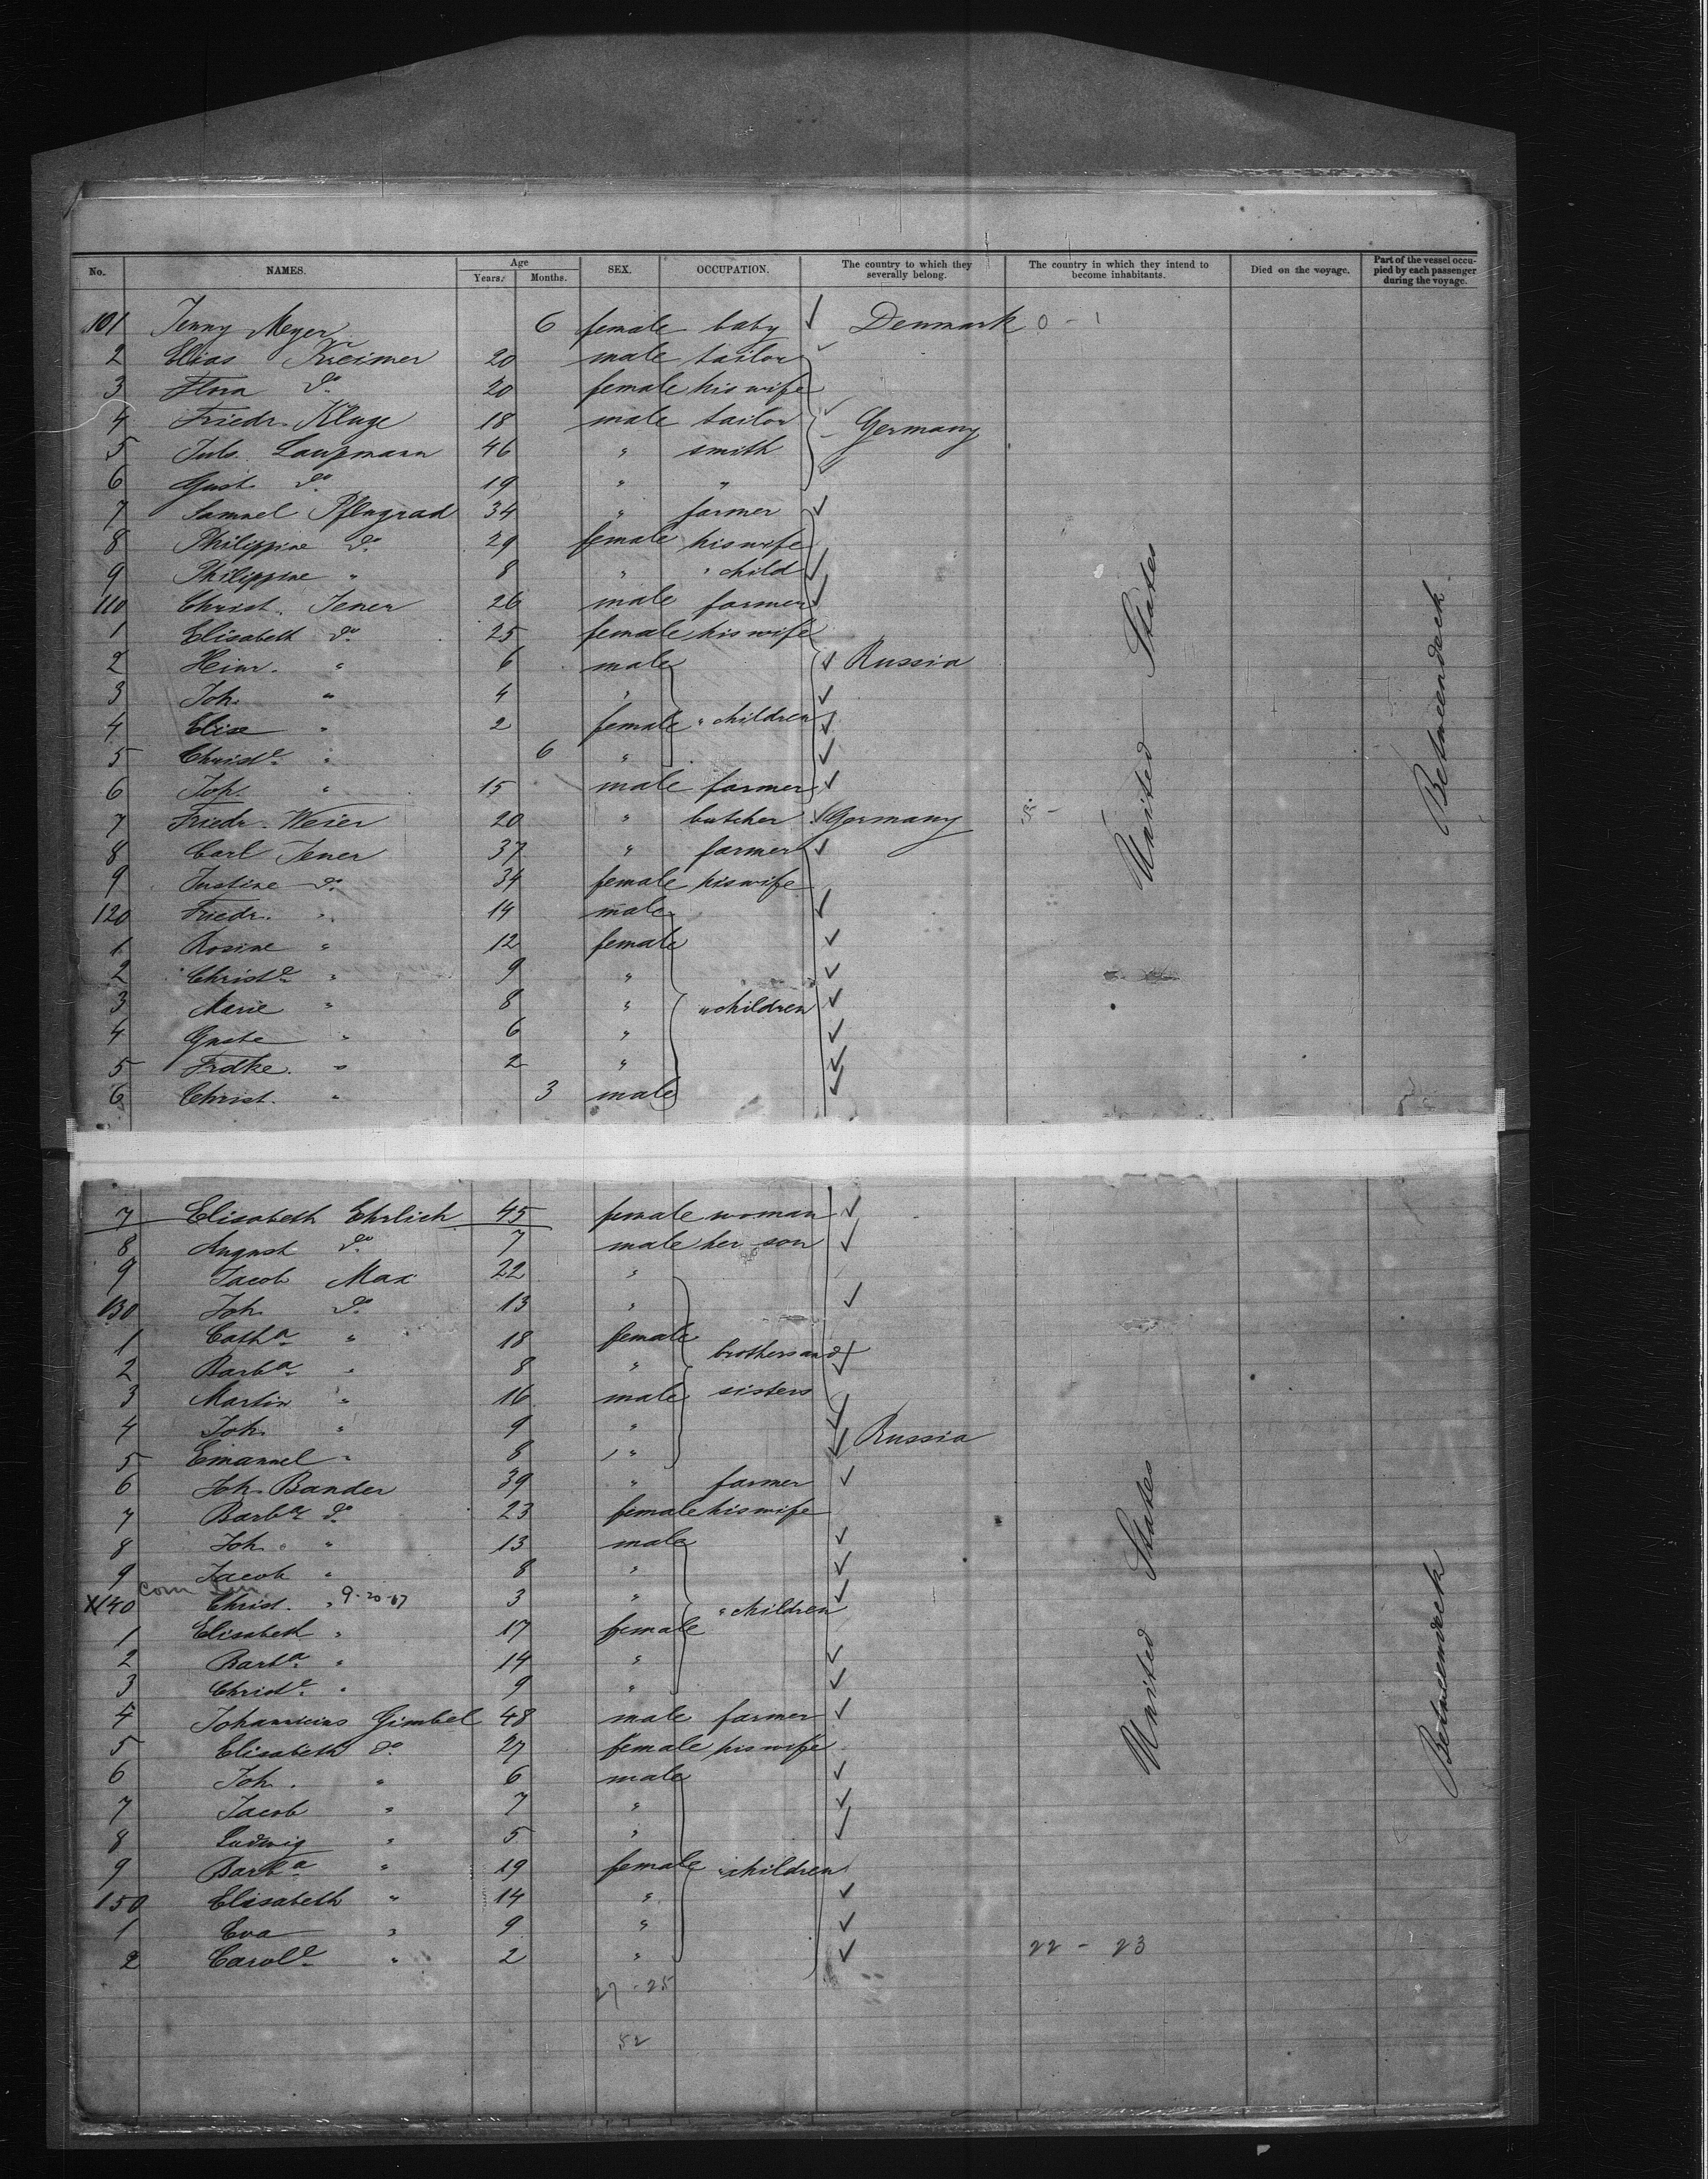 No. NAMES. Age Years. Months. SEX. OCCUPATION. The country to which they severally belong. The country in which they intend to become inhabitants. Died on the voyage. Part of the vessel occupied by each passenger during the voyage.
101 Jenny Meyer 6 female baby ✓ Denmark 0 - 1
2 Elias Kreimer 20 male tailor
3 Flora do 20 female his wife
4 Friedr. Kluge 18 male tailor Germany
5 Juls. Laupmann 46 " smith
6 Gust. do 19 " "
7 Samuel Pflugrad 34 " farmer ✓
8 Philippine do 29 female his wife
9 Philippine " 8 " " child ✓
110 Christ. Jener 26 male farmer ✓
1 Elisabeth do 25 female his wife
2 Heinr. " 6 male ✓ Russia
3 Joh. " 4 " ✓
4 Elise " 2 female " children ✓
5 Christe " 6 " ✓
6 Joh. " 15 male farmer ✓
7 Friedr. Weier 20 " butcher ✓ Germany
8 Carl Jener 37 " farmer ✓
9 Justine do 34 female his wife
120 Friedr. " 14 male ✓
1 Rosine " 12 female ✓
2 Christe " 9 " ✓
3 Marie " 8 " " children ✓
4 Guste " 6 " ✓
5 Frdke. " 2 " ✓
6 Christ. " 3 male ✓
United States
Betweendeck
7 Elisabeth Ehrlich 45 female woman ✓
8 August do 7 male her son ✓
9 Jacob Max 22 "
130 Joh. do 13 " ✓
1 Catha " 18 female brothers and
2 Barba " 8 " ✓
3 Martin " 16 male sisters ✓
4 Joh. " 9 " ✓ Russia
5 Emanuel " 8 " ✓
6 Joh. Bander 39 " farmer ✓
7 Barba do 23 female his wife
8 Joh. " 13 male ✓
9 Jacob " 8 " ✓
X140 Christ. " 9-20-67 3 " " children ✓
1 Elisabeth " 17 female
2 Barba " 14 " ✓
3 Christe " 9 " ✓
4 Gimbel 48 male farmer ✓
5 Elisabeth do 27 female his wife
6 Joh. " 6 male ✓
7 Jacob " 7 " ✓
8 Ludwig " 5 " ✓
9 Barba " 19 female " children
150 Elisabeth " 14 " ✓
1 Eva " 9 " ✓
2 Carole " 2 " ✓ 22 - 23
United States
Betweendeck
27 - 25
52